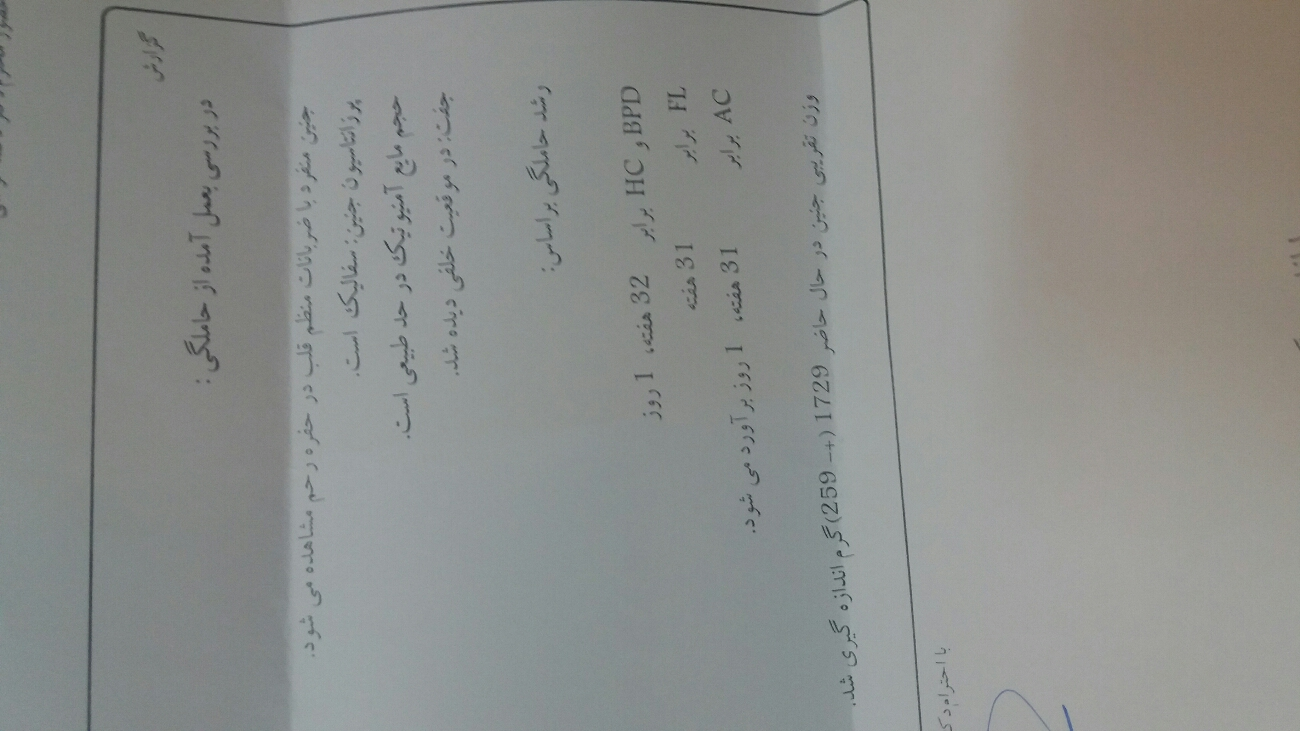 گزارش
در بررسی بعمل آمده از حاملگی :
جنین منفرد با ضربانات منظم قلب در حفره رحم مشاهده می شود.
پرزانتاسیون جنین: سفالیک است.
حجم مایع آمنیوتیک در حد طبیعی است.
جفت: در موقعیت خلفی دیده شد.
رشد حاملگی بر اساس:
BPD و HC برابر 32 هفته، 1 روز
FL برابر 31 هفته
AC برابر 31 هفته، 1 روز برآورد می شود.
وزن تقریبی جنین در حال حاضر 1729 (+- 259) گرم اندازه گیری شد.
با احترام